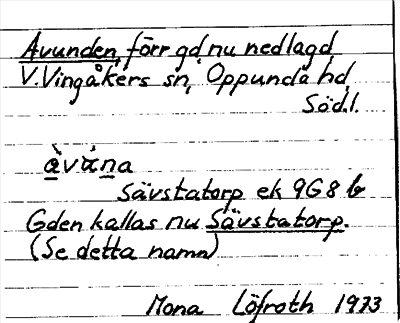 Avunden, förr gd, nu nedlagd
V. Vingåkers sn, Oppunda hd,
Södl.
àvàna
Sävstatorp ek 9G8 b
Gden kallas nu Sävstatorp.
(Se detta namn)
Mona Löfroth 1973